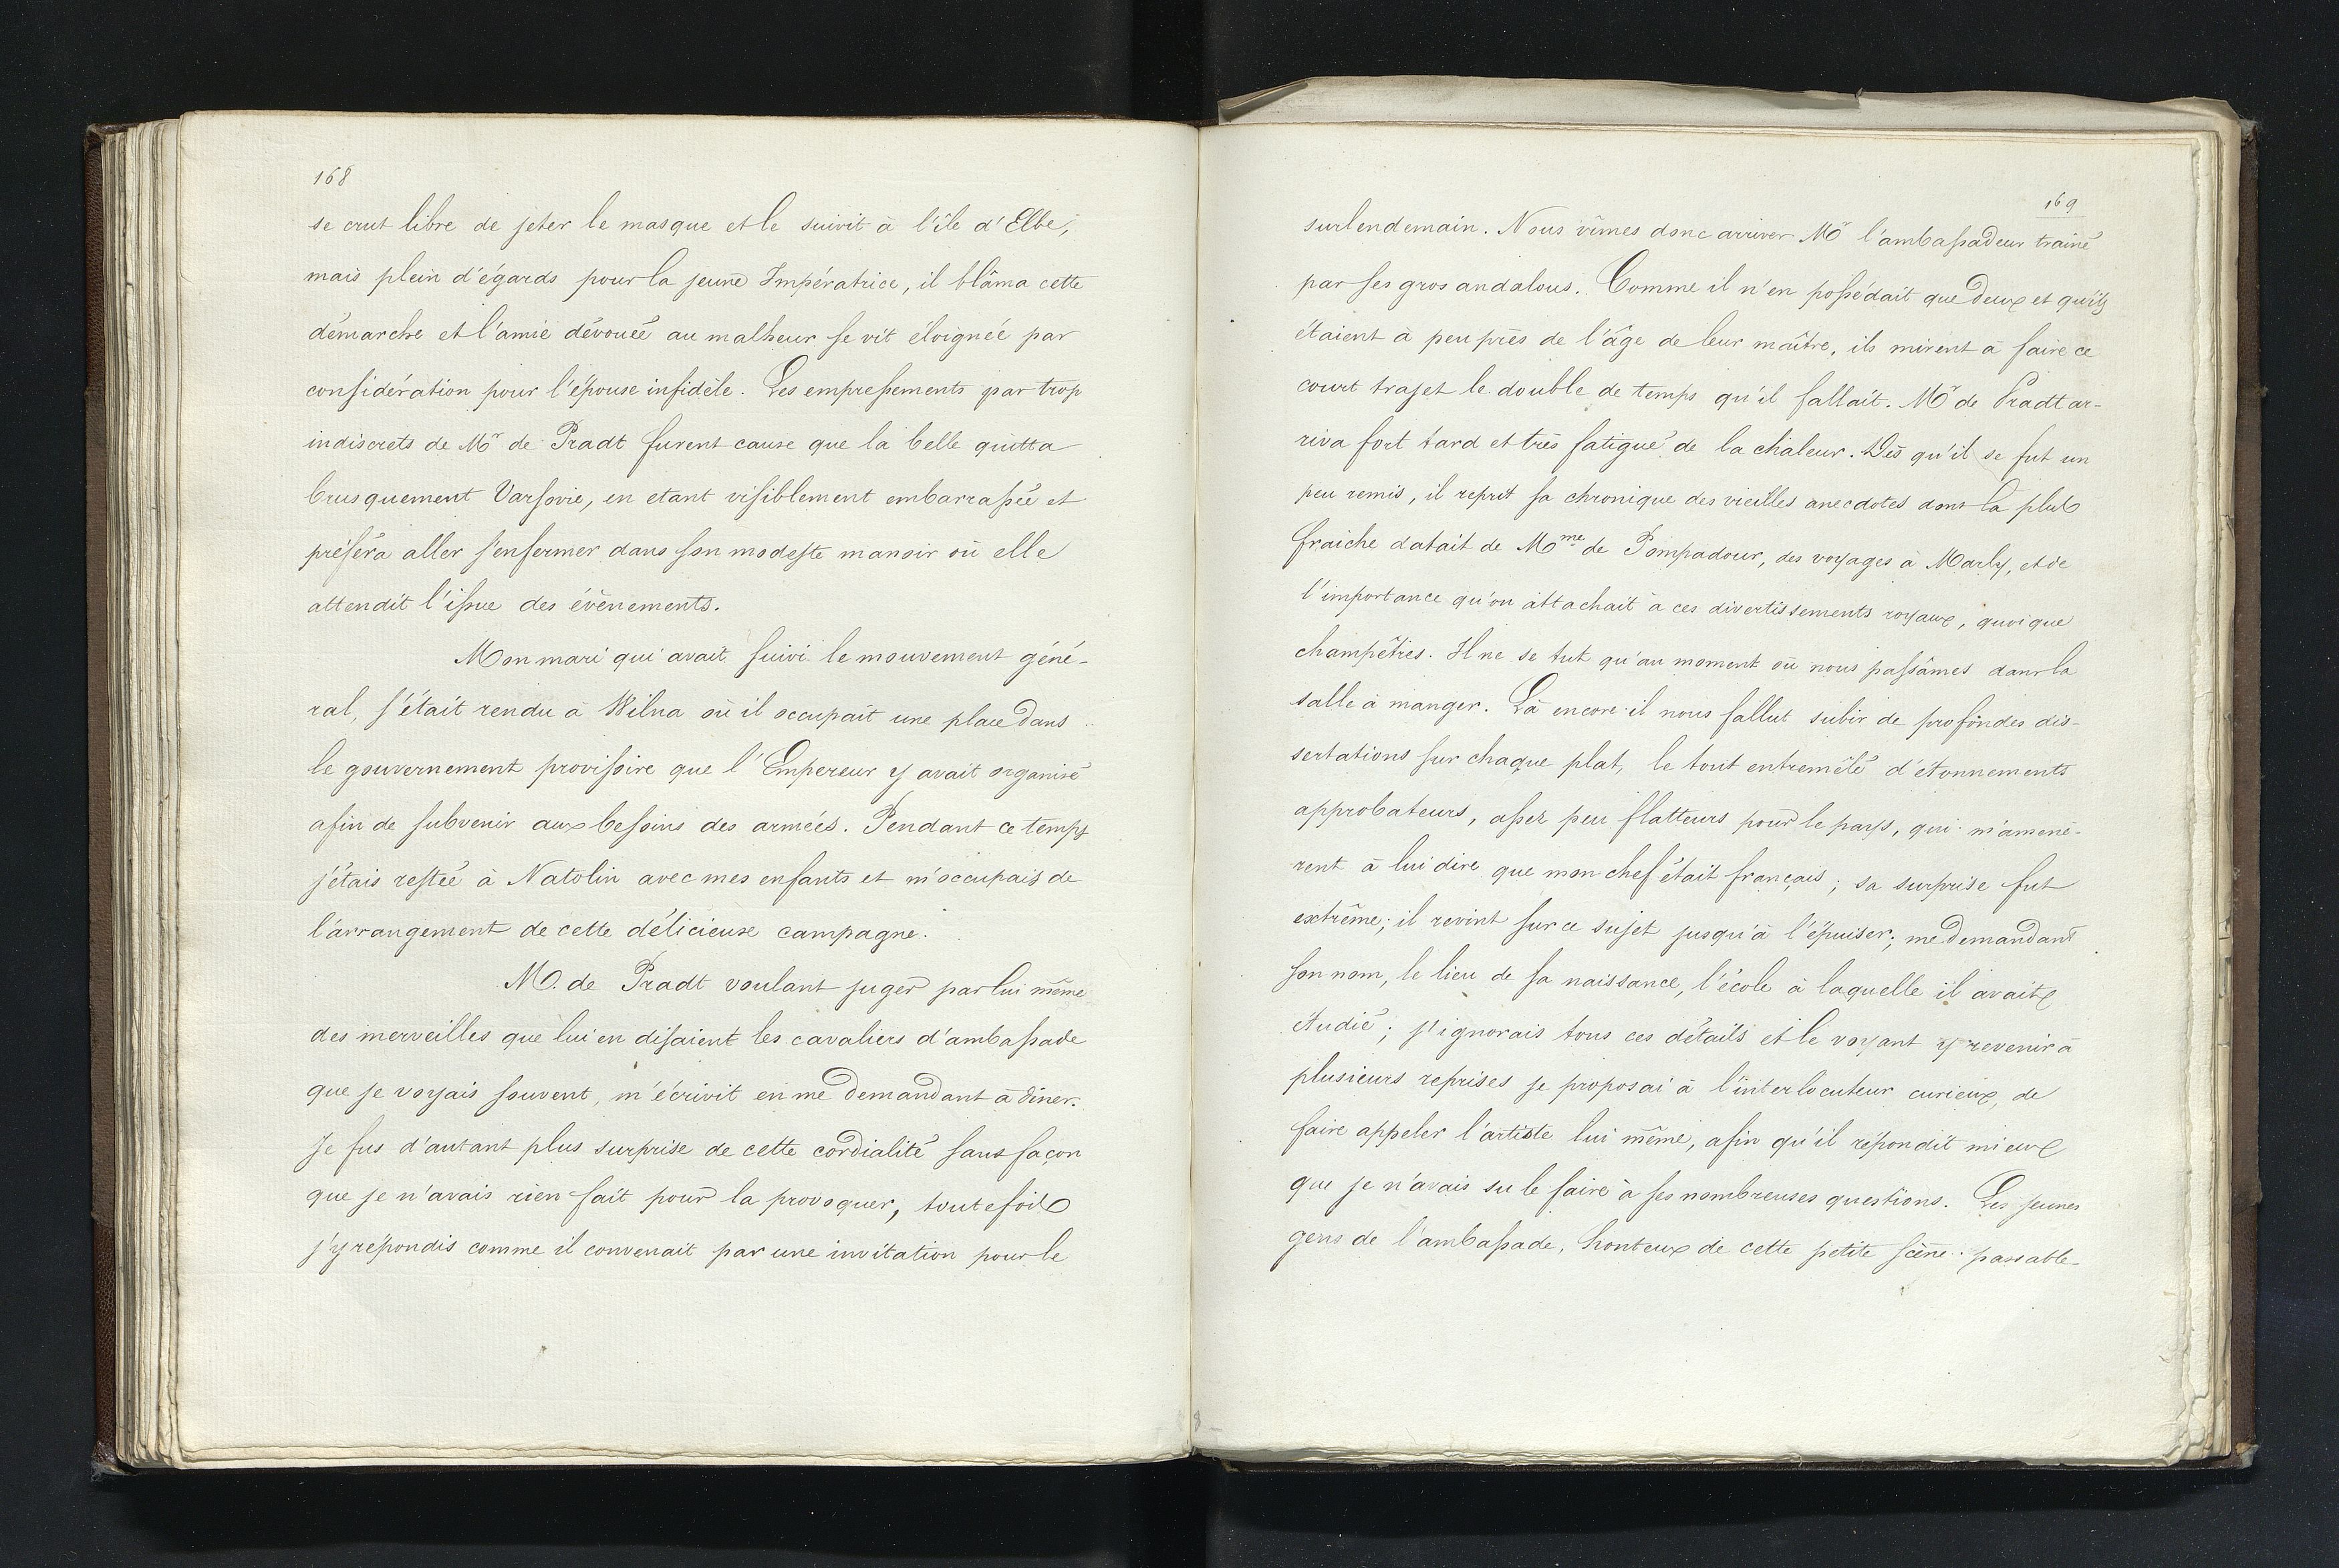 168
se crut libre de jeter le masque et le suivit à l'île d'Elbe,
mais plein d'égards pour la jeune Impératrice, il blâma cette
démarche et l'amie dévouée au malheur se vit éloignée par
considération pour l'épouse infidèle. Les empressements par trop
indiscrets de Mr de Pradt furent cause que la belle quitta
brusquement Varsovie, en etant visiblement embarrassée et
préféra aller s'enfermer dans son modeste manoir où elle
attendit l'issue des évènements.
Mon mari qui avait suivi le mouvement géné-
ral, s'était rendu à Wilna où il occupait une place dans
le gouvernement provisoire que l'Empereur y avait organisé
afin de subvenir aux besoins des armées. Pendant ce temps
j'étais restée à Natolin avec mes enfants et m'occupais de
l'arrangement de cette délicieuse campagne.
M. de Pradt voulant juger par lui même
des merveilles que lui en disaient les cavaliers d'ambassade
que je voyais souvent, m'écrivit en me demandant à dîner.
Je fus d'autant plus surprise de cette cordialité sans façon
que je n'avais rien fait pour la provoquer, toutefois
j'y répondis comme il convenait par une invitation pour le
169
surlendemain. Nous vîmes donc arriver Mr l'ambassadeur traîné
par ses gros andalous. Comme il n'en possédait que deux et qu'ils
étaient à peu près de l'âge de leur maître, ils mirent à faire ce
court trajet le double de temps qu'il fallait. Mr de Pradt ar-
riva fort tard et très fatigué de la chaleur. Dès qu'il se fut un
peu remis, il reprit sa chronique des vieilles anecdotes dont la plus
fraiche datait de Mme de Pompadour, des voyages à Marly, et de
l'importance qu'on attachait à ces divertissements royaux, quoique
champêtres. Il ne se tut qu'au moment où nous passâmes dans la
salle à manger. Là encore il nous fallut subir de profondes dis-
sertations sur chaque plat, le tout entremêlé d'étonnements
approbateurs, assez peu flatteurs pour le pays, qui m'amenè-
rent à lui dire que mon chef était français; sa surprise fut
extrême; il revint sur ce sujet jusqu'à l'épuiser; me demandant
son nom, le lieu de sa naissance, l'école à laquelle il avait
étudié; j'ignorais tous ces détails et le voyant y revenir à
plusieurs reprises je proposai à l'interlocuteur curieux, de
faire appeler l'artiste lui même, afin qu'il répondit mieux
que je n'avais su le faire à ses nombreuses questions. Les jeunes
gens de l'ambassade, honteux de cette petite scène passable-